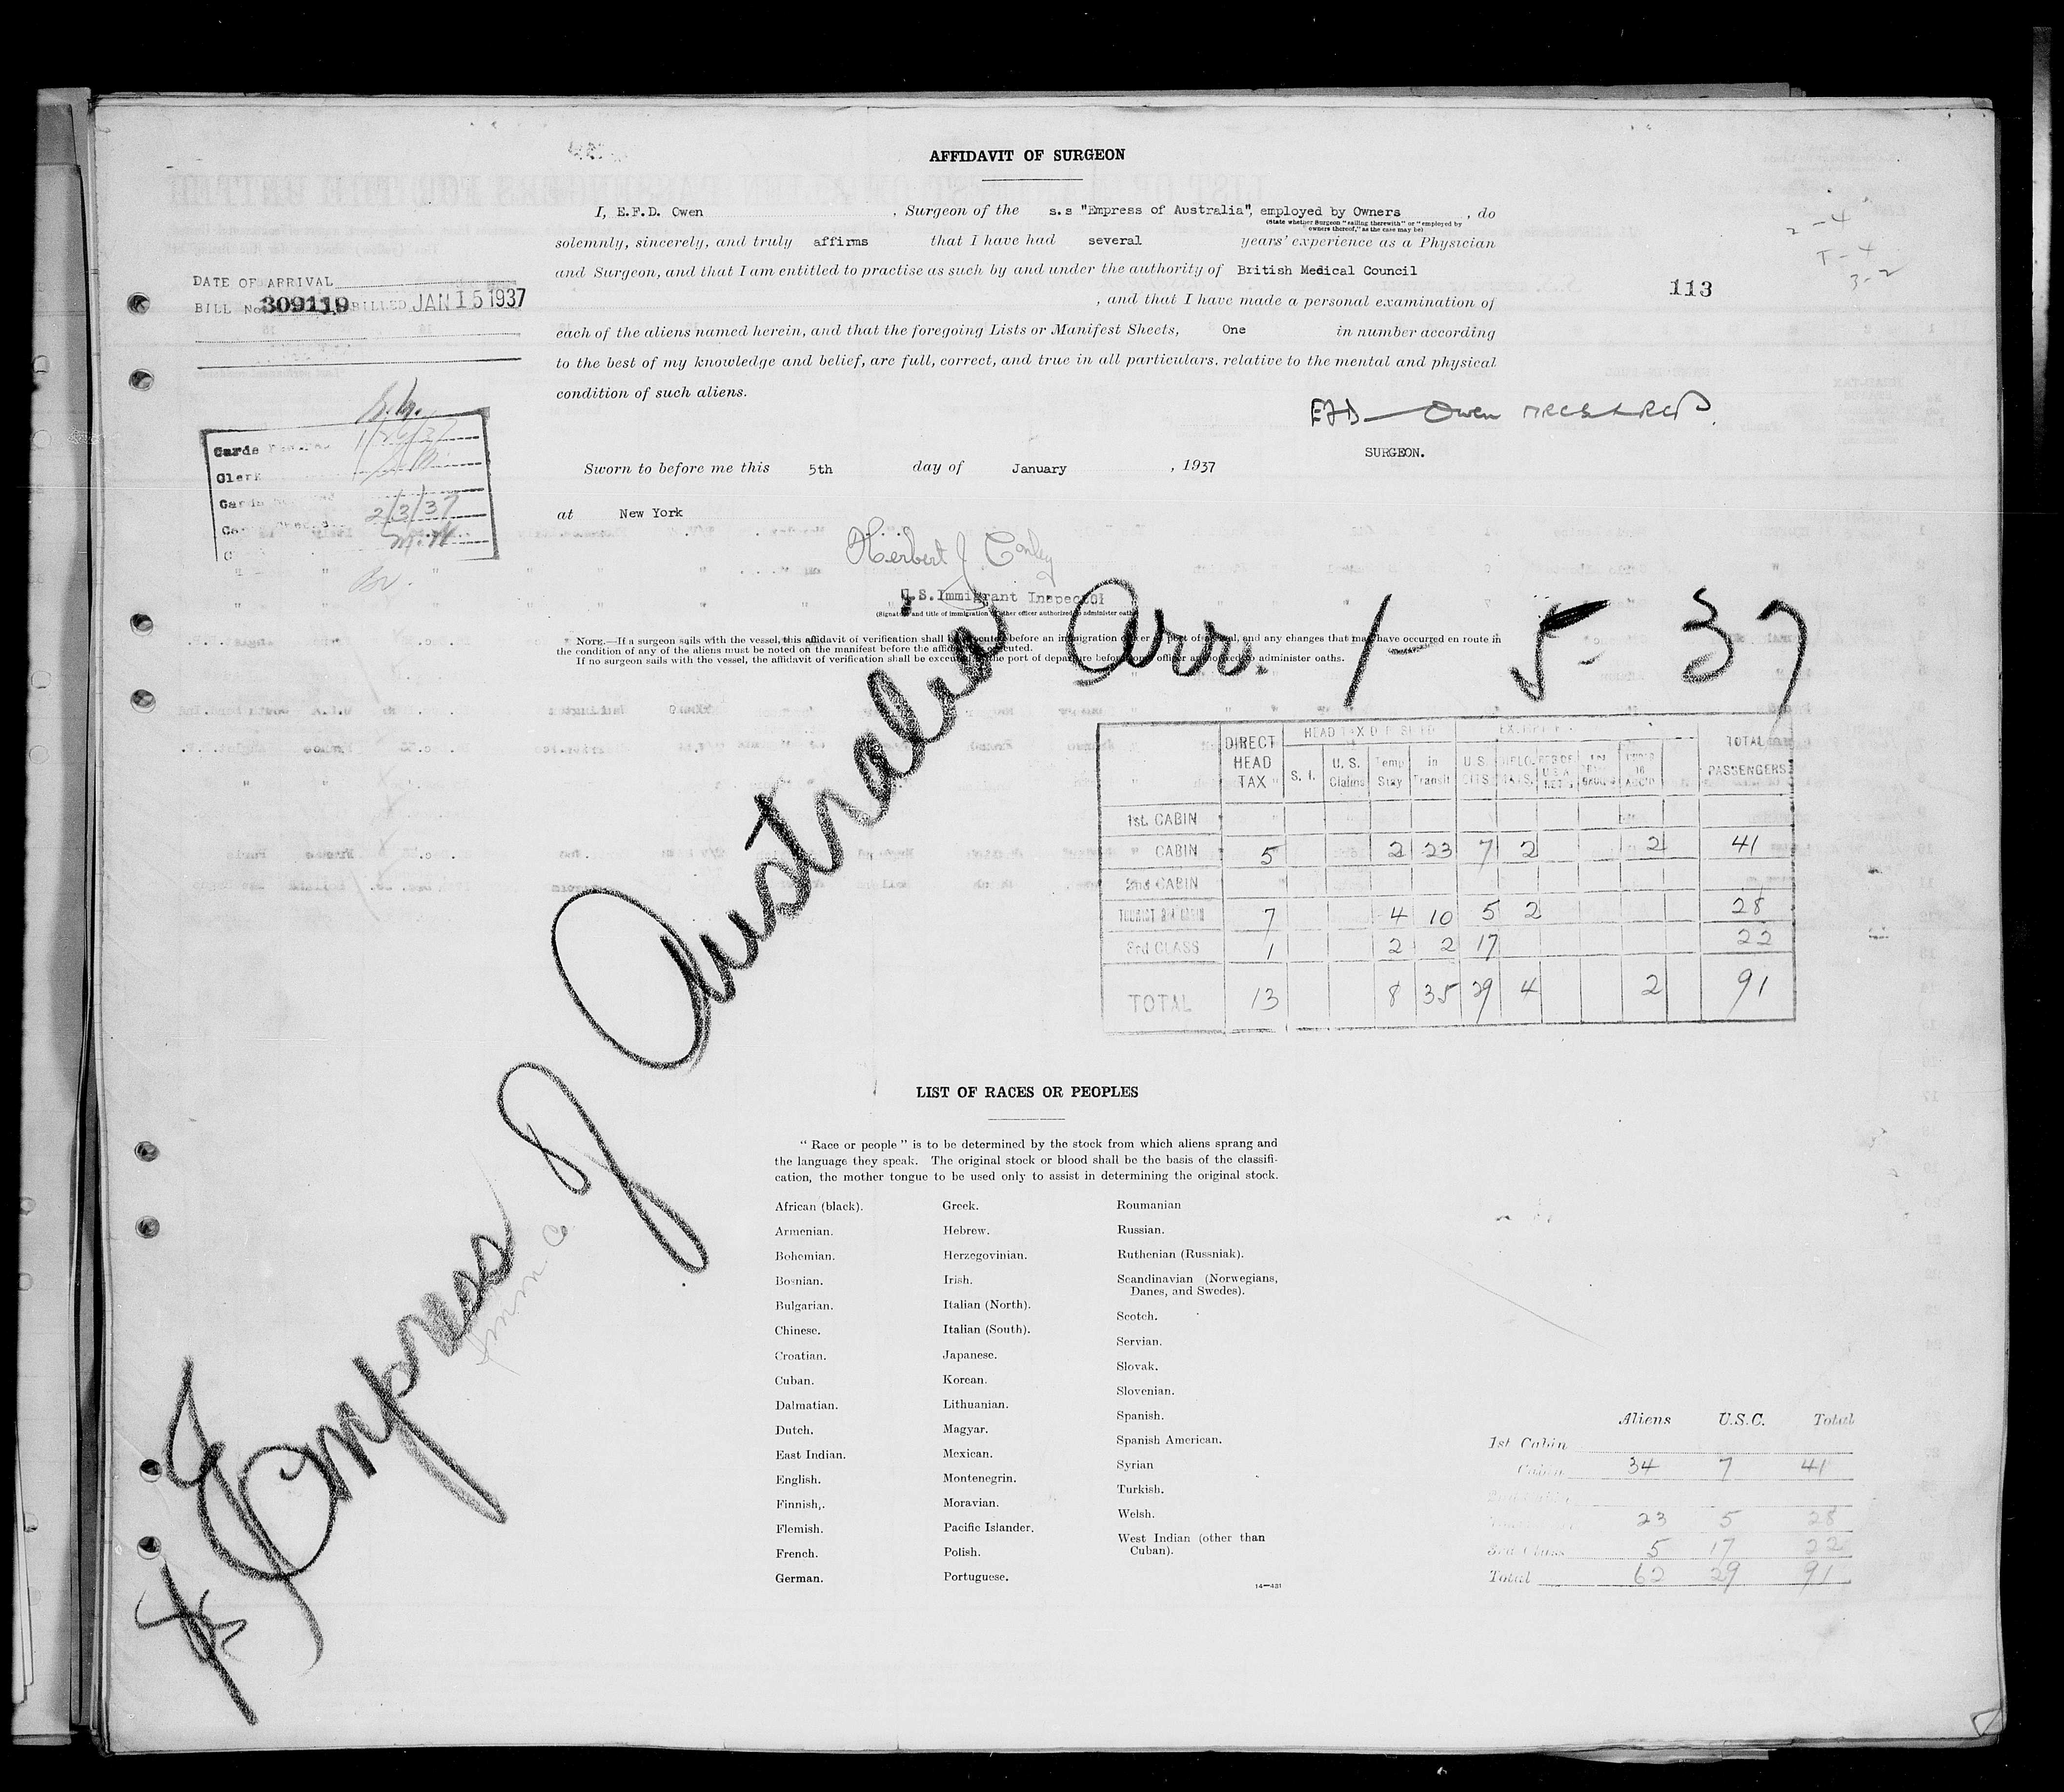 AFFIDAVIT OF SURGEON
I, E.F.D. Owen , Surgeon of the s.s "Empress of Australia", employed by Owners , do
(State whether Surgeon "sailing therewith" or "employed by
owners thereof," as the case may be)
solemnly, sincerely, and truly affirms that I have had several years' experience as a Physician
and Surgeon, and that I am entitled to practise as such by and under the authority of British Medical Council
, and that I have made a personal examination of
each of the aliens named herein, and that the foregoing Lists or Manifest Sheets, One in number according
to the best of my knowledge and belief, are full, correct, and true in all particulars. relative to the mental and physical
condition of such aliens.
2-4
T-4
3-2
113
DATE OF ARRIVAL
BILL No. 309119 BILLED JAN 15 1937
EFD Owen
SURGEON.
Cards
1/26/37
Clerk
Cards
2/3/37
Sworn to before me this 5th day of January , 1937
at New York
Herbert J Conley
U.S. Immigrant Inspector
(Signature and title of immigration or other officer authorized to administer oaths)
NOTE.—If a surgeon sails with the vessel, this affidavit of verification shall be executed before an immigration officer at port of arrival, and any changes that may have occurred en route in
the condition of any of the aliens must be noted on the manifest before the affidavit is executed.
If no surgeon sails with the vessel, the affidavit of verification shall be executed at the port of departure before some officer authorized to administer oaths.
Empress of Australia Arr. 1-5-37
DIRECT HEAD TAX HEAD TAX DEPOSITED EXEMPT TOTAL PASSENGERS
S. I. U. S. Claims Temp Stay in Transit U. S. CITS. DIPLO-MATS.
1st. CABIN
CABIN 5 2 23 7 2 2 41
2nd CABIN
TOURIST 3rd CABIN 7 4 10 5 2 28
3rd CLASS 1 2 2 17 22
TOTAL 13 8 35 29 4 2 91
LIST OF RACES OR PEOPLES
"Race or people" is to be determined by the stock from which aliens sprang and
the language they speak. The original stock or blood shall be the basis of the classifi-
cation, the mother tongue to be used only to assist in determining the original stock.
African (black).
Armenian.
Bohemian.
Bosnian.
Bulgarian.
Chinese.
Croatian.
Cuban.
Dalmatian.
Dutch.
East Indian.
English.
Finnish,.
Flemish.
French.
German.
Greek.
Hebrew.
Herzegovinian.
Irish.
Italian (North).
Italian (South).
Japanese.
Korean.
Lithuanian.
Magyar.
Mexican.
Montenegrin.
Moravian.
Pacific Islander.
Polish.
Portuguese.
Roumanian
Russian.
Ruthenian (Russniak).
Scandinavian (Norwegians,
Danes, and Swedes).
Scotch.
Servian.
Slovak.
Slovenian.
Spanish.
Spanish American.
Syrian
Turkish.
Welsh.
West Indian (other than
Cuban).
14—431
Aliens U.S.C. Total
1st Cabin
Cabin 34 7 41
23 5 28
3rd Class 5 17 22
Total 62 29 91